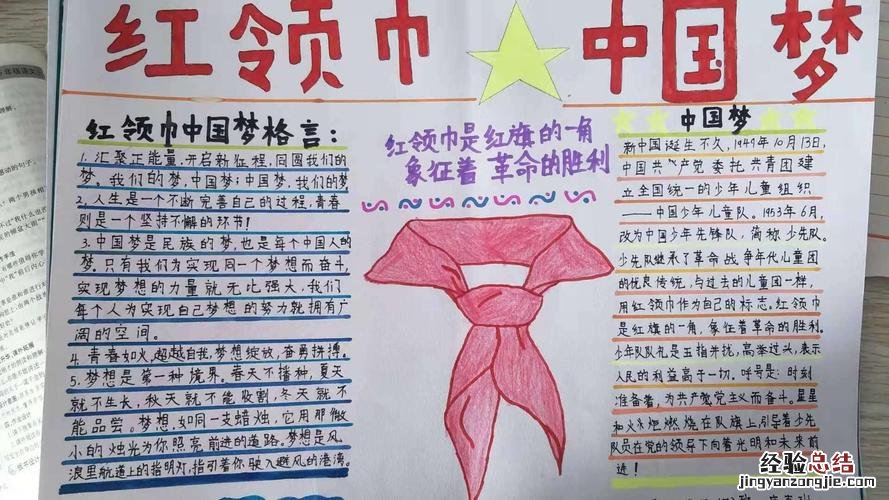 红领巾 中国梦
红领巾中国梦格言：
1. 汇聚正能量，开启新征程，同圆我们的
梦。我们的梦，中国梦；中国梦，我们的梦
2. 人生是一个不断完善自己的过程，青春
则是一个坚持不懈的环节！
3. 中国梦是民族的梦，也是每个中国人的
梦。只有我们为实现同一个梦想而奋斗，
实现梦想的力量就无比强大，我们
每个人为实现自己梦想的努力就拥有广
阔的空间。
4. 青春如火，超越自我，梦想绽放，奋勇拼搏。
5. 梦想是第一种境界。春天不播种，夏天
就不生长，秋天就不能收割，冬天就不
能品尝。梦想，如同一支蜡烛，它用那微
小的烛光为你照亮前进的道路。梦想是风
浪里航道上的指明灯，指引着你驶入避风的港湾。
红领巾是红旗的一角
象征着 革命的胜利
中国梦
新中国诞生不久，1949年10月13日，
中国共产党委托共青团建
立全国统一的少年儿童组织
——中国少年儿童队。1953年6月，
改为中国少年先锋队，简称少先队。
少先队继承了革命战争年代儿童团
的优良传统，与过去的儿童团一样，
用红领巾作为自己的标志。红领巾
是红旗的一角，象征着革命的胜利。
少年队队礼是五指并拢，高举过头，表示
人民的利益高于一切。呼号是：时刻
准备着，为共产党主义而奋斗。星星
和火火炬燃烧在队旗上，引导着少先
队员在党的领导下向着光明和未来前
进！
经验总结
jingyanzongjie.com